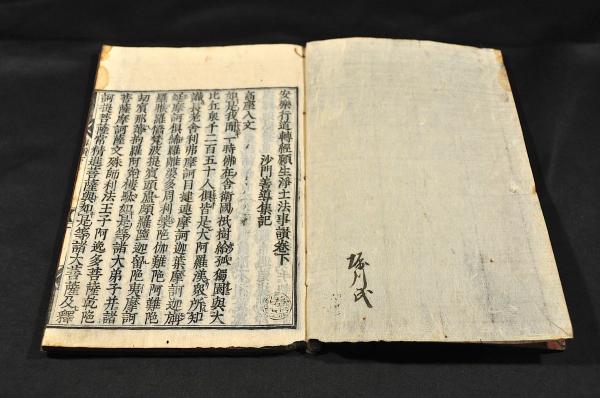 安樂行道轉經願生淨土法事讚卷下
沙門善導集記
高座入文
如是我聞一時佛在舍衛國祇樹給孤獨園與大
比丘衆千二百五十人俱皆是大阿羅漢衆所知
識長老舍利弗摩訶目犍連摩訶迦葉摩訶迦旃
延摩訶俱絺羅離婆多周利槃陀伽難陀阿難陀
羅睺羅憍梵波提賓頭盧頗羅墮迦留陀夷摩訶
劫賓那薄拘羅阿㝹樓馱如是等諸大弟子并諸
菩薩摩訶薩文殊師利法王子阿逸多菩薩乾陀
訶提菩薩常精進菩薩與如是等諸大菩薩及釋